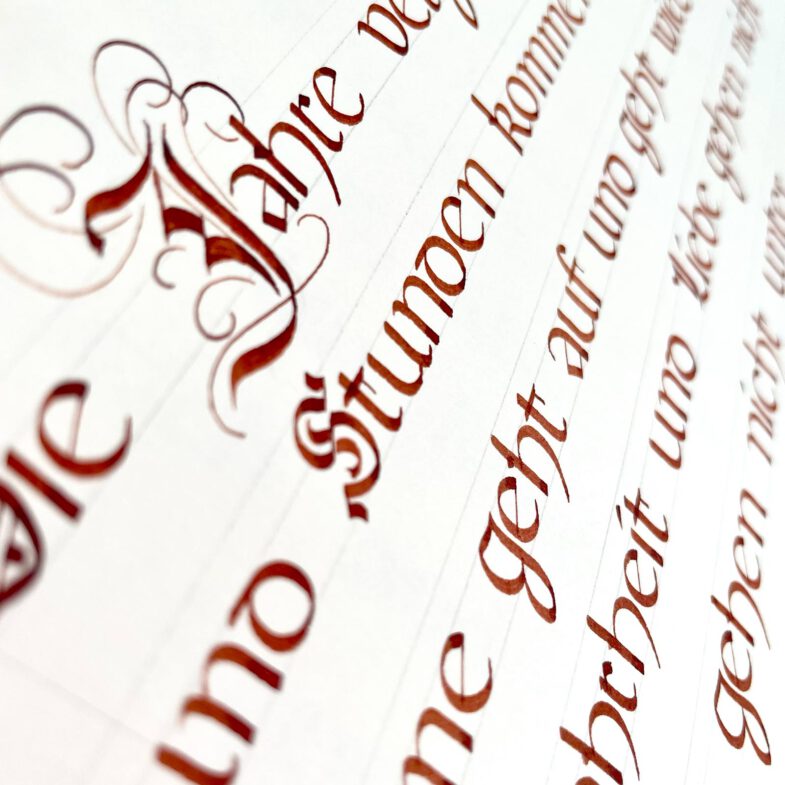 Die Jahre ver
und Stunden komme
ne geht auf und geht wie
hrheit und Liebe gehen nich
gehen nicht unter